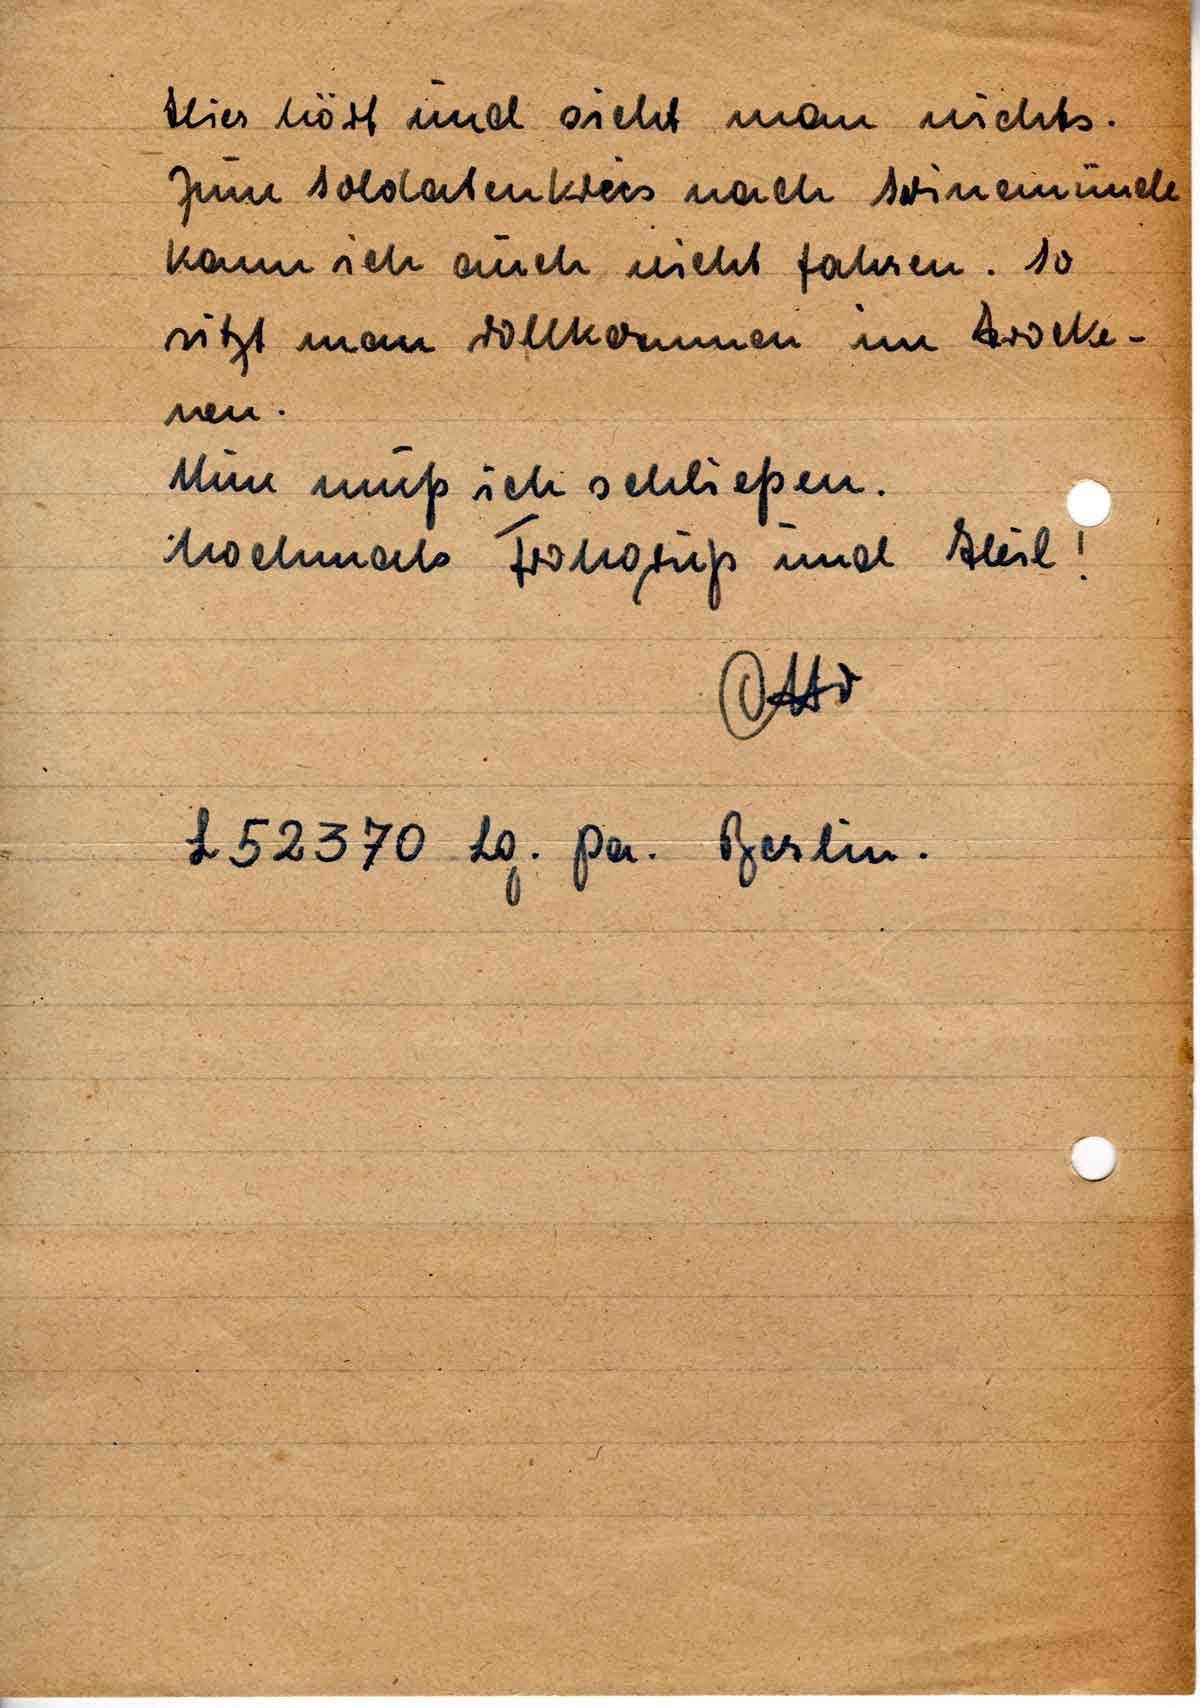 Hier hört und sieht man nichts.
Zum Soldatenkreis nach Swinemünde
kann ich auch nicht fahren. So
sitzt man vollkommen im Trocke-
nen.
Nun muß ich schließen.
Nochmals Frohgruß und Heil!
Otto
L 52370 Lg. pa. Berlin.